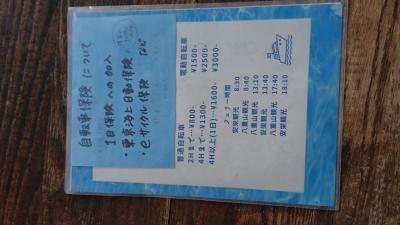 自転車保険について
1日保険への加入
・東京海上日動保険
・eサイクル保険 など
普通自転車
2Hまで…¥800-
4Hまで…¥1300-
4H以上(1日)…¥1600-
電動自転車
¥1500-
¥2500-
¥3000-
フェリー時間
安栄観光 8:30
八重山観光 8:40
八重山観光 13:10
安栄観光 13:40
八重山観光 17:40
安栄観光 18:10